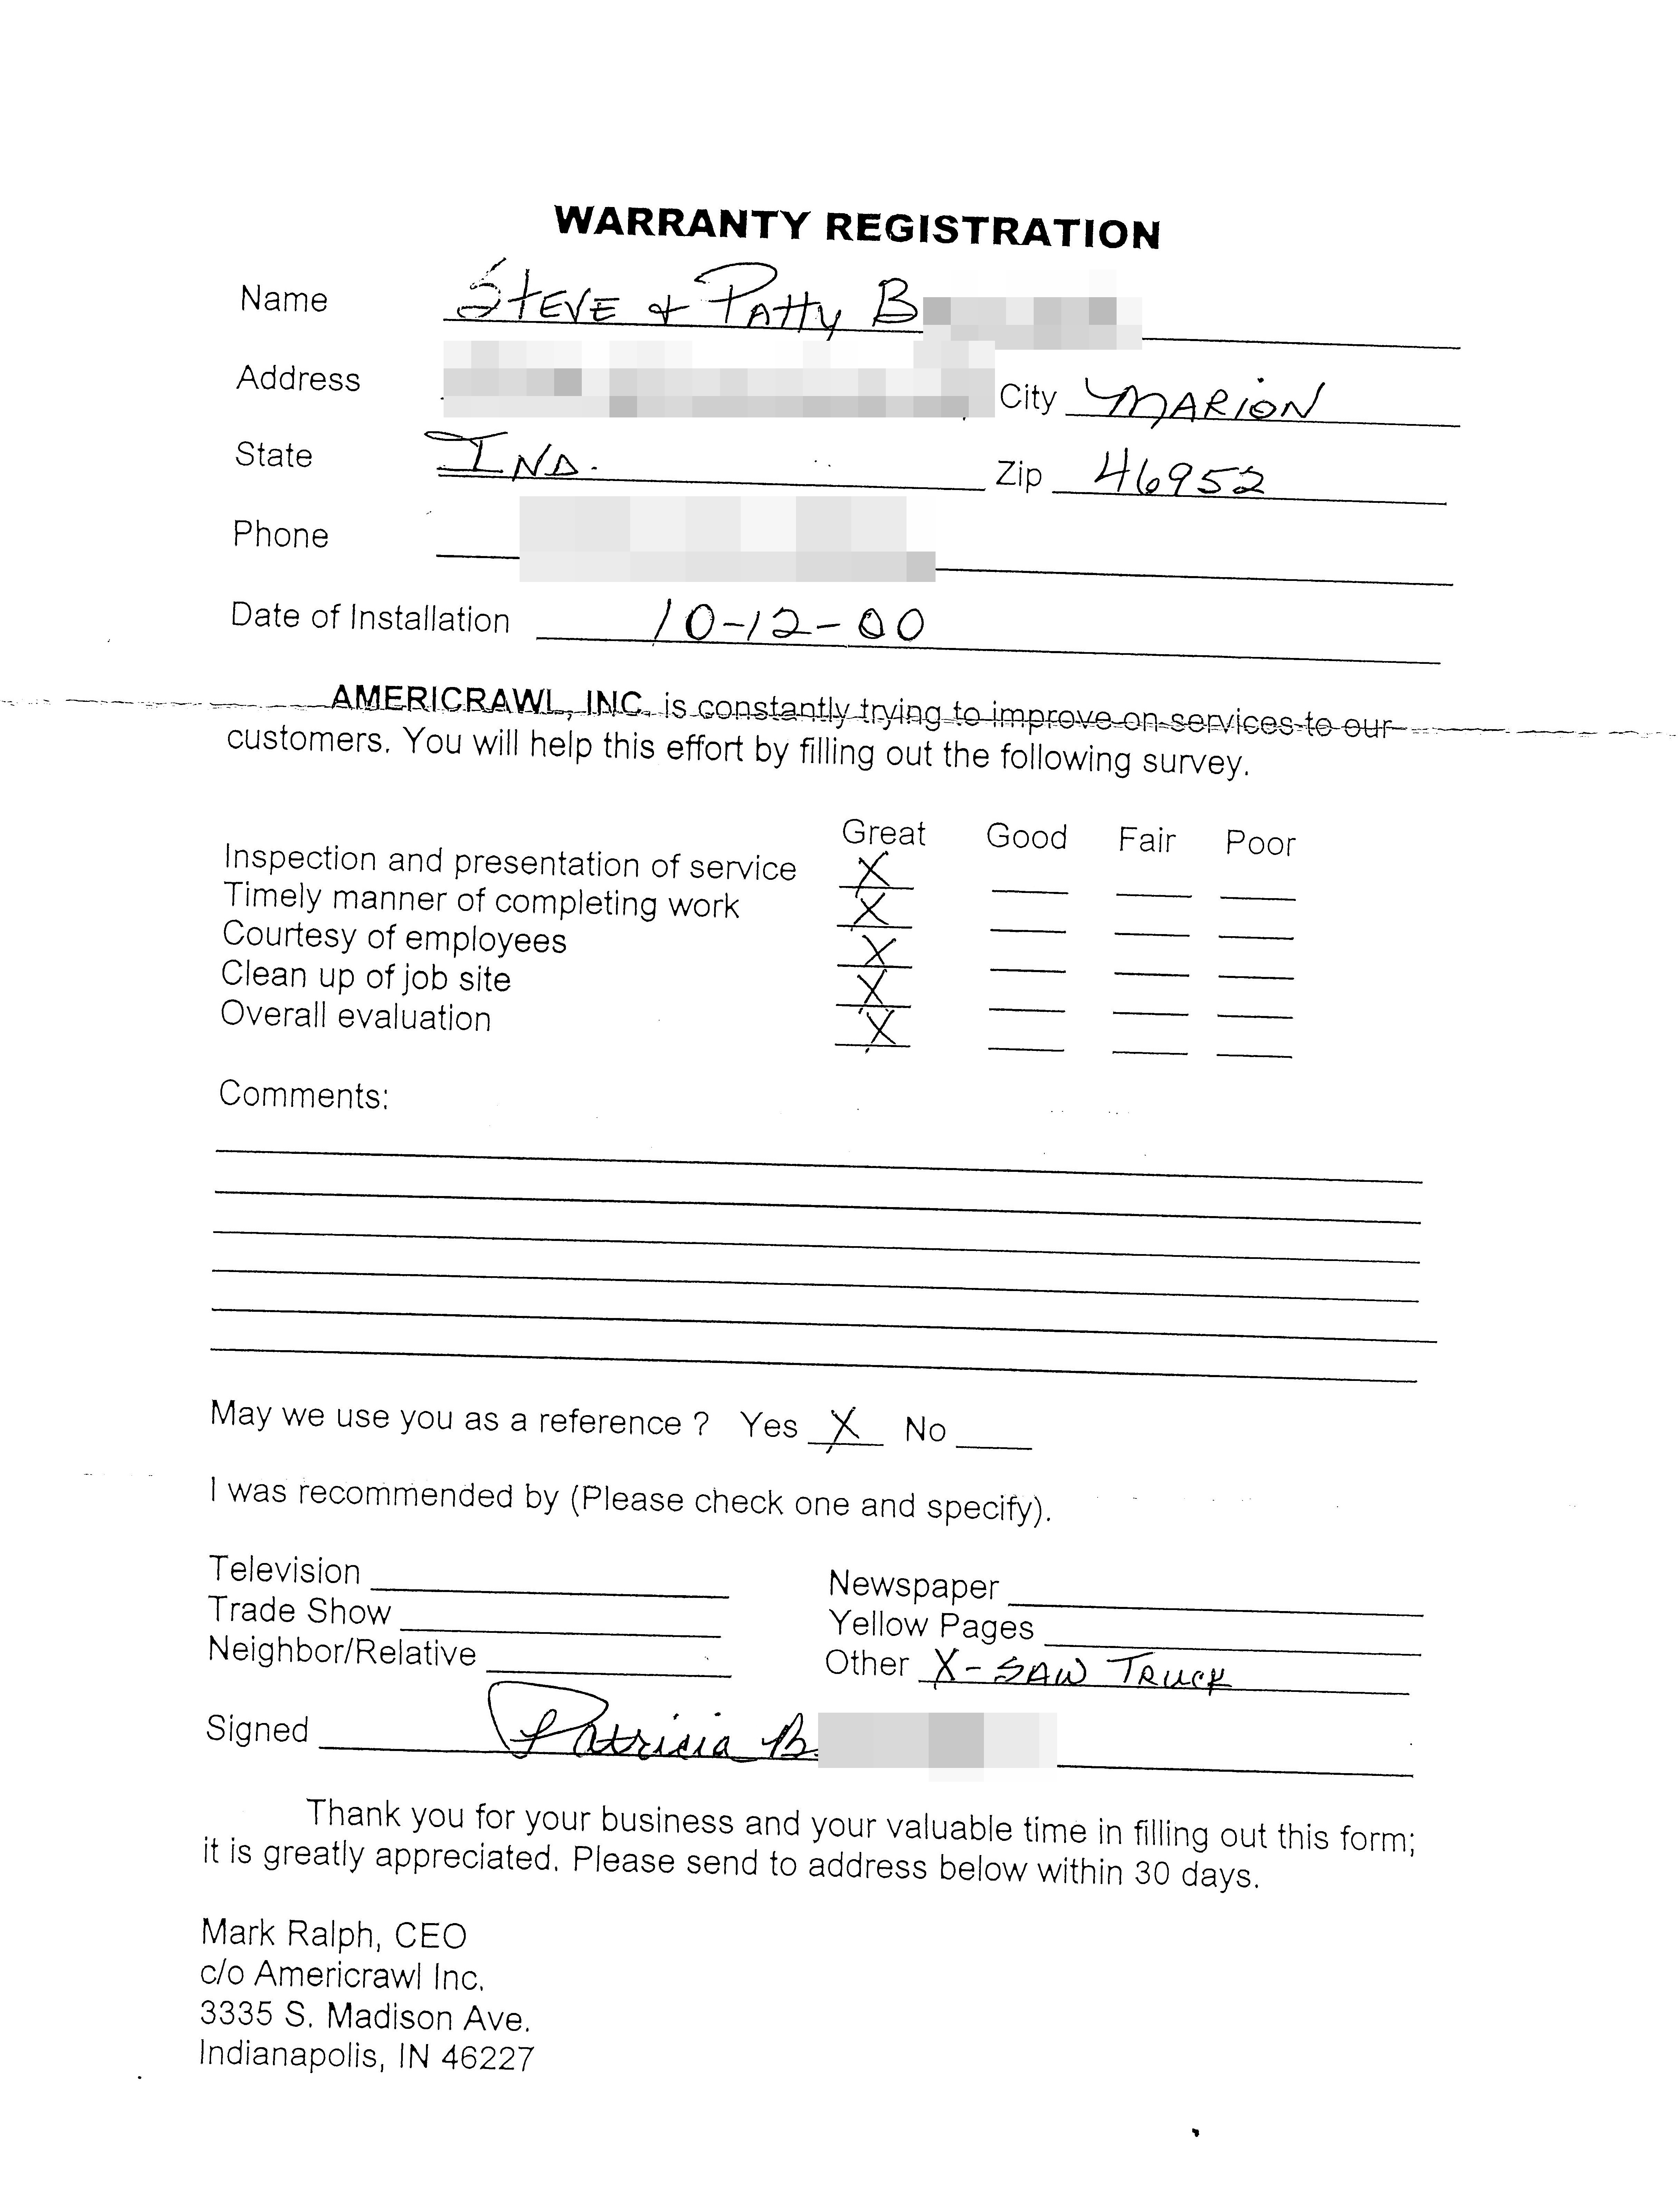 WARRANTY REGISTRATION
Name STEVE & PATTY B
Address City MARION
State IND. Zip 46952
Phone
Date of Installation 10-12-00
AMERICRAWL, INC. is constantly trying to improve on services to our
customers. You will help this effort by filling out the following survey.
Great Good Fair Poor
Inspection and presentation of service X
Timely manner of completing work X
Courtesy of employees X
Clean up of job site X
Overall evaluation X
Comments:
May we use you as a reference ? Yes X No
I was recommended by (Please check one and specify).
Television Newspaper
Trade Show Yellow Pages
Neighbor/Relative Other X - SAW TRUCK
Signed Patricia B
Thank you for your business and your valuable time in filling out this form;
it is greatly appreciated. Please send to address below within 30 days.
Mark Ralph, CEO
c/o Americrawl Inc.
3335 S. Madison Ave.
Indianapolis, IN 46227